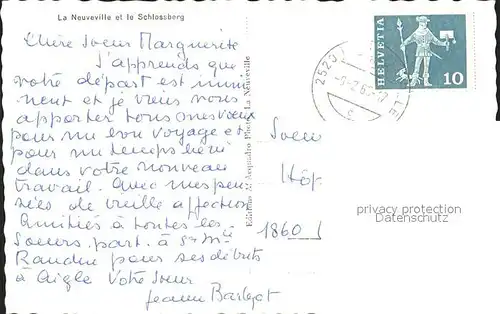 La Neuveville et le Schlossberg
Chère Soeur Marguerite
J'apprends que
votre départ est immi
nent et je viens vous
apporter tous mes voeux
pour un bon voyage et
pour un temps béni
dans votre nouveau
travail. Avec mes pen
sées de vieille affection
Amitiés à toutes les
Soeurs, part. à Sr Mlle
pour ses débuts
à Aigle Votre Soeur
Jeanne
Editions
La Neuveville
HELVETIA
10
2520
Soeu
Hôp
1860
privacy protection
Datenschutz